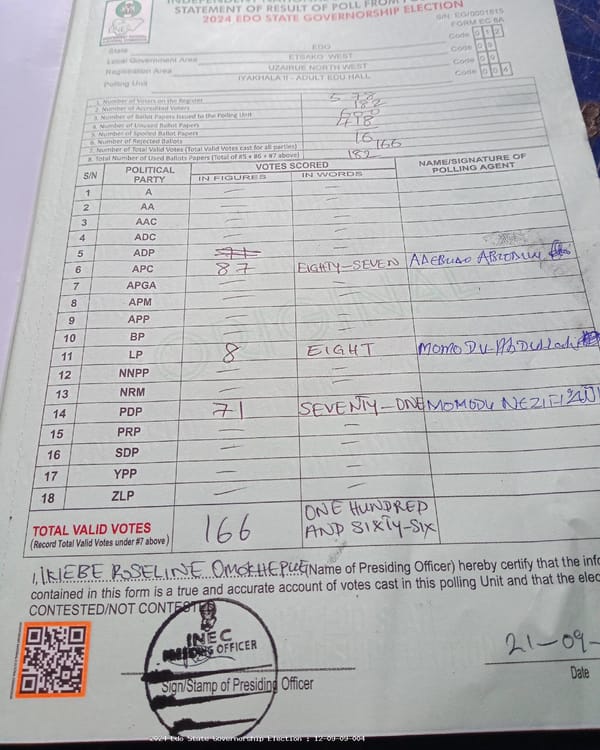 STATEMENT OF RESULT OF POLL FROM
2024 EDO STATE GOVERNORSHIP ELECTION
S/N: EG/0001815
FORM EC 8A
State EDO Code 012
Local Government Area ETSAKO WEST Code 09
Registration Area UZAIRUE NORTH WEST Code 09
Polling Unit IYAKHALA II - ADULT EDU HALL Code 004
1. Number of Voters on the Register 578
2. Number of Accredited Voters 182
3. Number of Ballot Papers Issued to the Polling Unit 600
4. Number of Unused Ballot Papers 418
5. Number of Spoiled Ballot Papers
6. Number of Rejected Ballots 16
7. Number of Total Valid Votes (Total Valid Votes cast for all parties) 166
8. Total Number of Used Ballots Papers (Total of #5 + #6 + #7 above) 182
S/N POLITICAL PARTY VOTES SCORED NAME/SIGNATURE OF POLLING AGENT
IN FIGURES IN WORDS
1 A — —
2 AA — —
3 AAC — —
4 ADC — —
5 ADP 71 —
6 APC 87 EIGHTY-SEVEN ADEBUAO ABIODUN
7 APGA — —
8 APM — —
9 APP — —
10 BP — —
11 LP 8 EIGHT MOMODU
12 NNPP — —
13 NRM — —
14 PDP 71 SEVENTY-ONE MOMODU
15 PRP — —
16 SDP — —
17 YPP — —
18 ZLP — —
TOTAL VALID VOTES 166 ONE HUNDRED AND SIXTY-SIX
(Record Total Valid Votes under #7 above)
I, IKIEBE ROSELINE (Name of Presiding Officer) hereby certify that the
contained in this form is a true and accurate account of votes cast in this polling Unit and that the
CONTESTED/NOT
INEC
PRESIDING OFFICER
21-09-
Sign/Stamp of Presiding Officer Date
2024 Edo State Governorship Election : 12-09-09-004